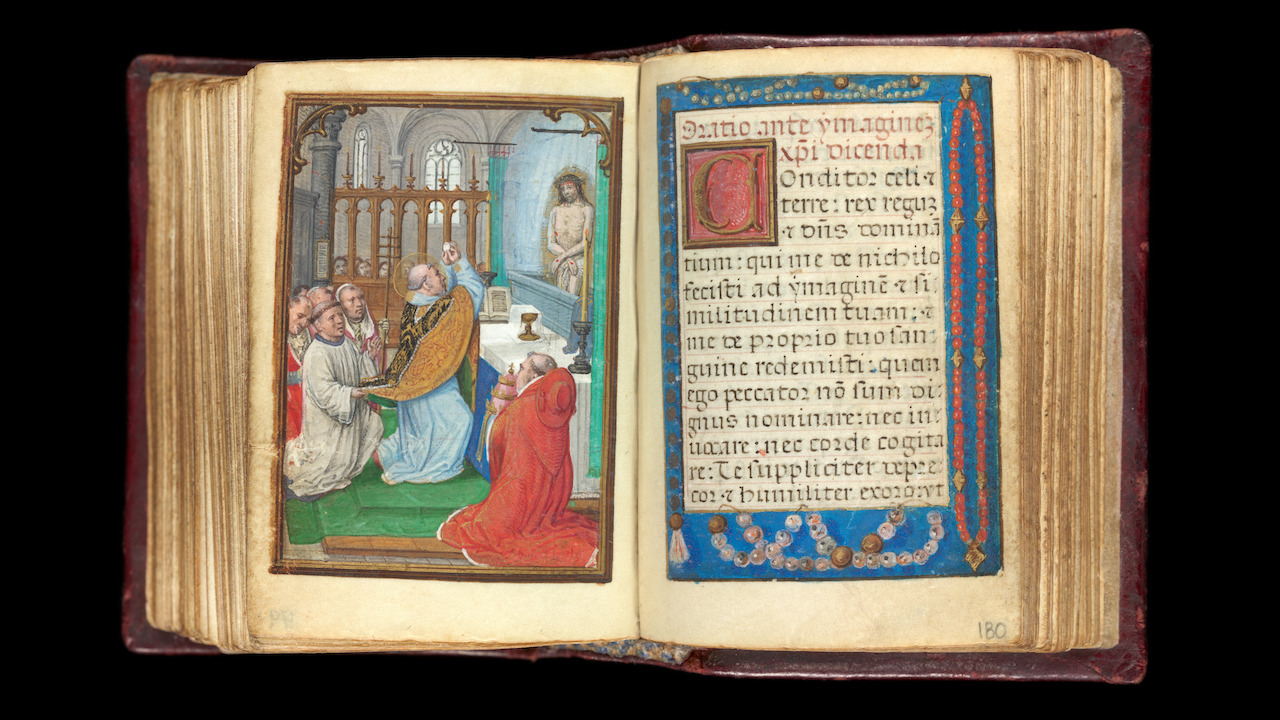 Oratio ante ymaginez
xp̄i dicenda
COnditor celi ⁊
terre: rex reguz
⁊ dn̄s dominā
tium: qui me de nichilo
fecisti ad ymaginē ⁊ si
militudinem tuam: ⁊
me de proprio tuo san
guine redemisti: quem
ego peccator nō sum di
gnus nominare: nec in
uocare: nec corde cogita
re: Te suppliciter depre
cor ⁊ humiliter exoro vt
180